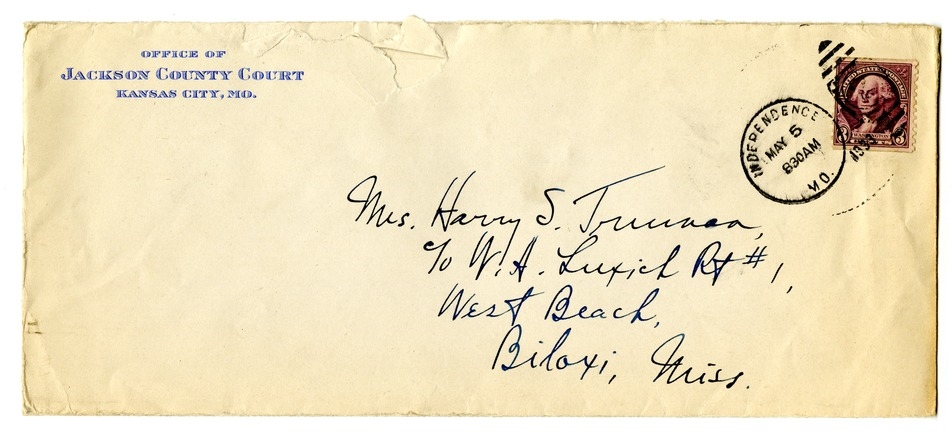 OFFICE OF
JACKSON COUNTY COURT
KANSAS CITY, MO.
UNITED STATES POSTAGE
3 WASHINGTON 3
INDEPENDENCE
MAY 5
830AM
MO.
Mrs. Harry S. Truman,
c/o W. A. Luxich Rt #1,
West Beach,
Biloxi, Miss.